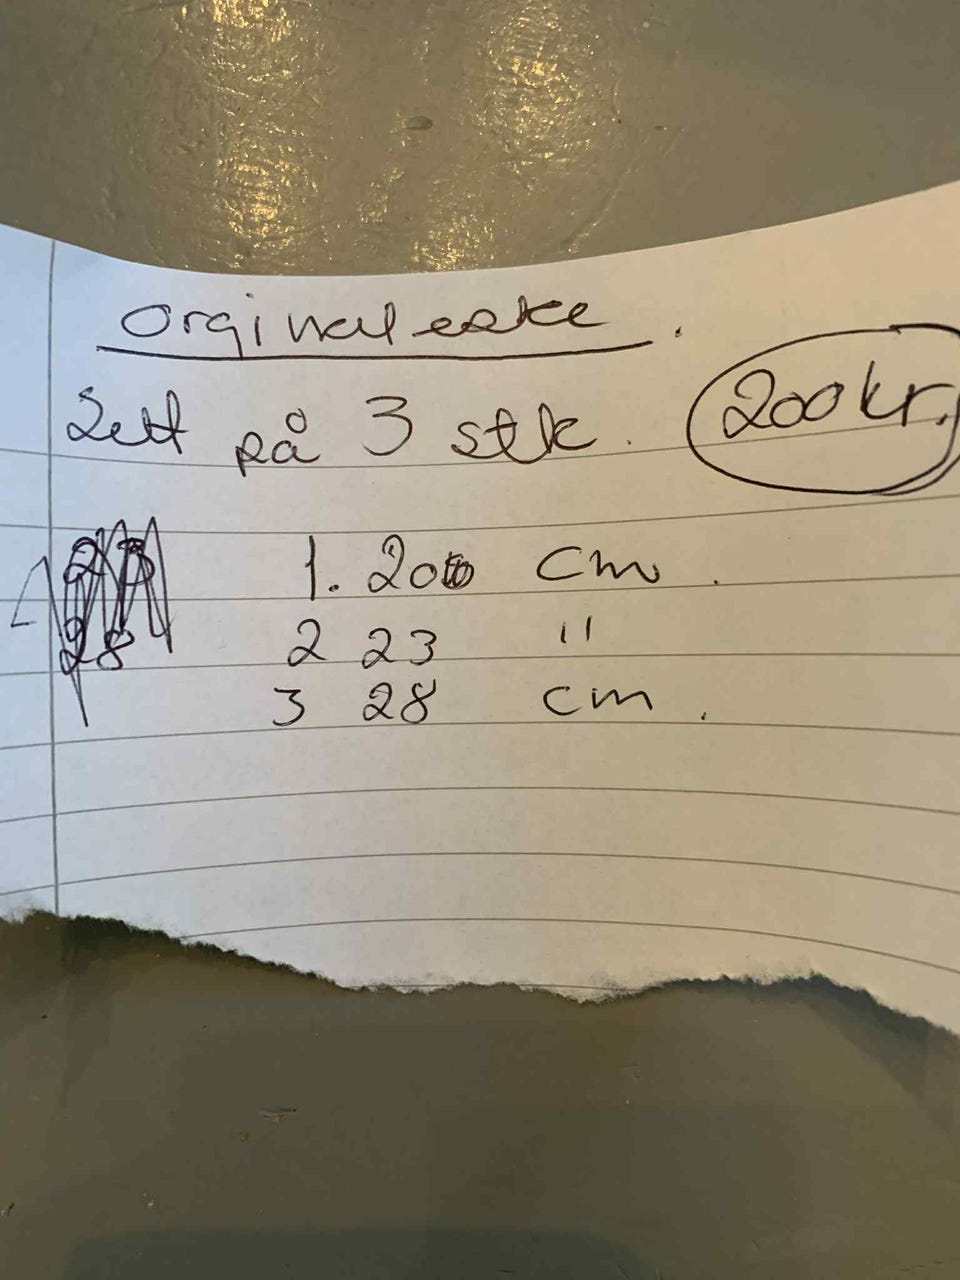 Orginal eske.
Sett på 3 stk. 200 kr.
1. 20 cm.
2 23 "
3 28 cm.
28